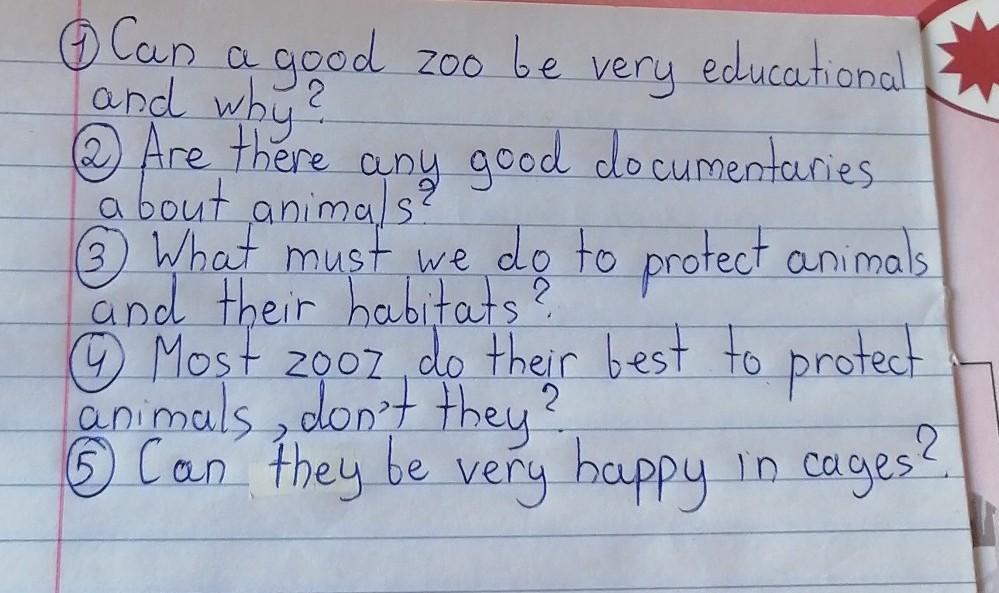 ① Can a good zoo be very educational
and why?
② Are there any good documentaries
about animals?
③ What must we do to protect animals
and their habitats?
④ Most zooz do their best to protect
animals, don't they?
⑤ Can they be very happy in cages?